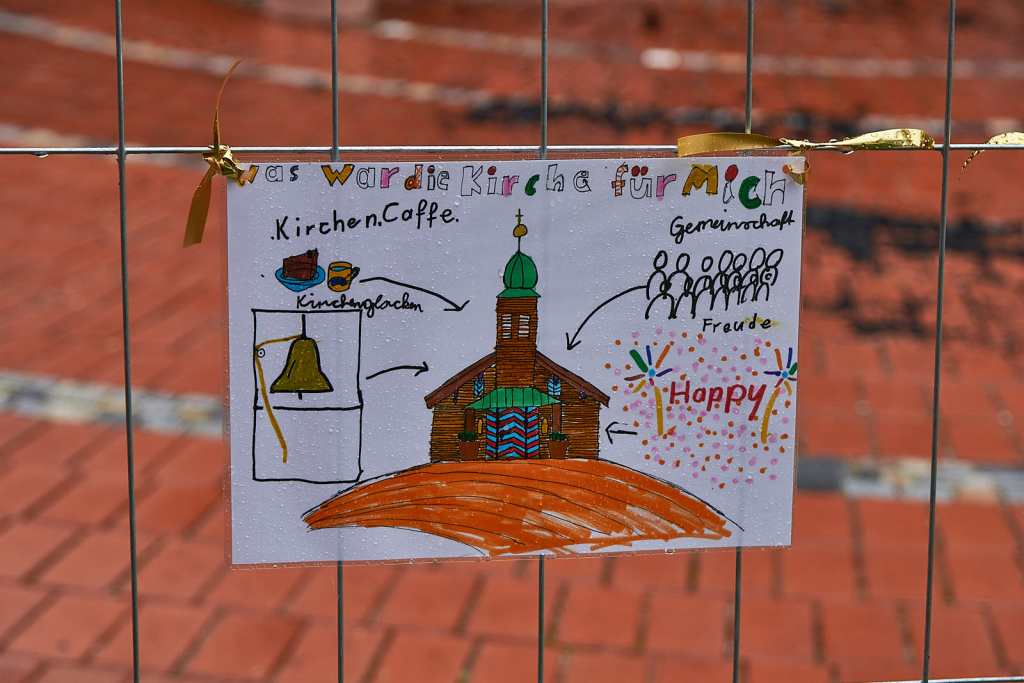 Was war die Kirche für Mich
.Kirchen.Caffe.
Gemeinschaft
Kirchenglocken
Freude
Happy